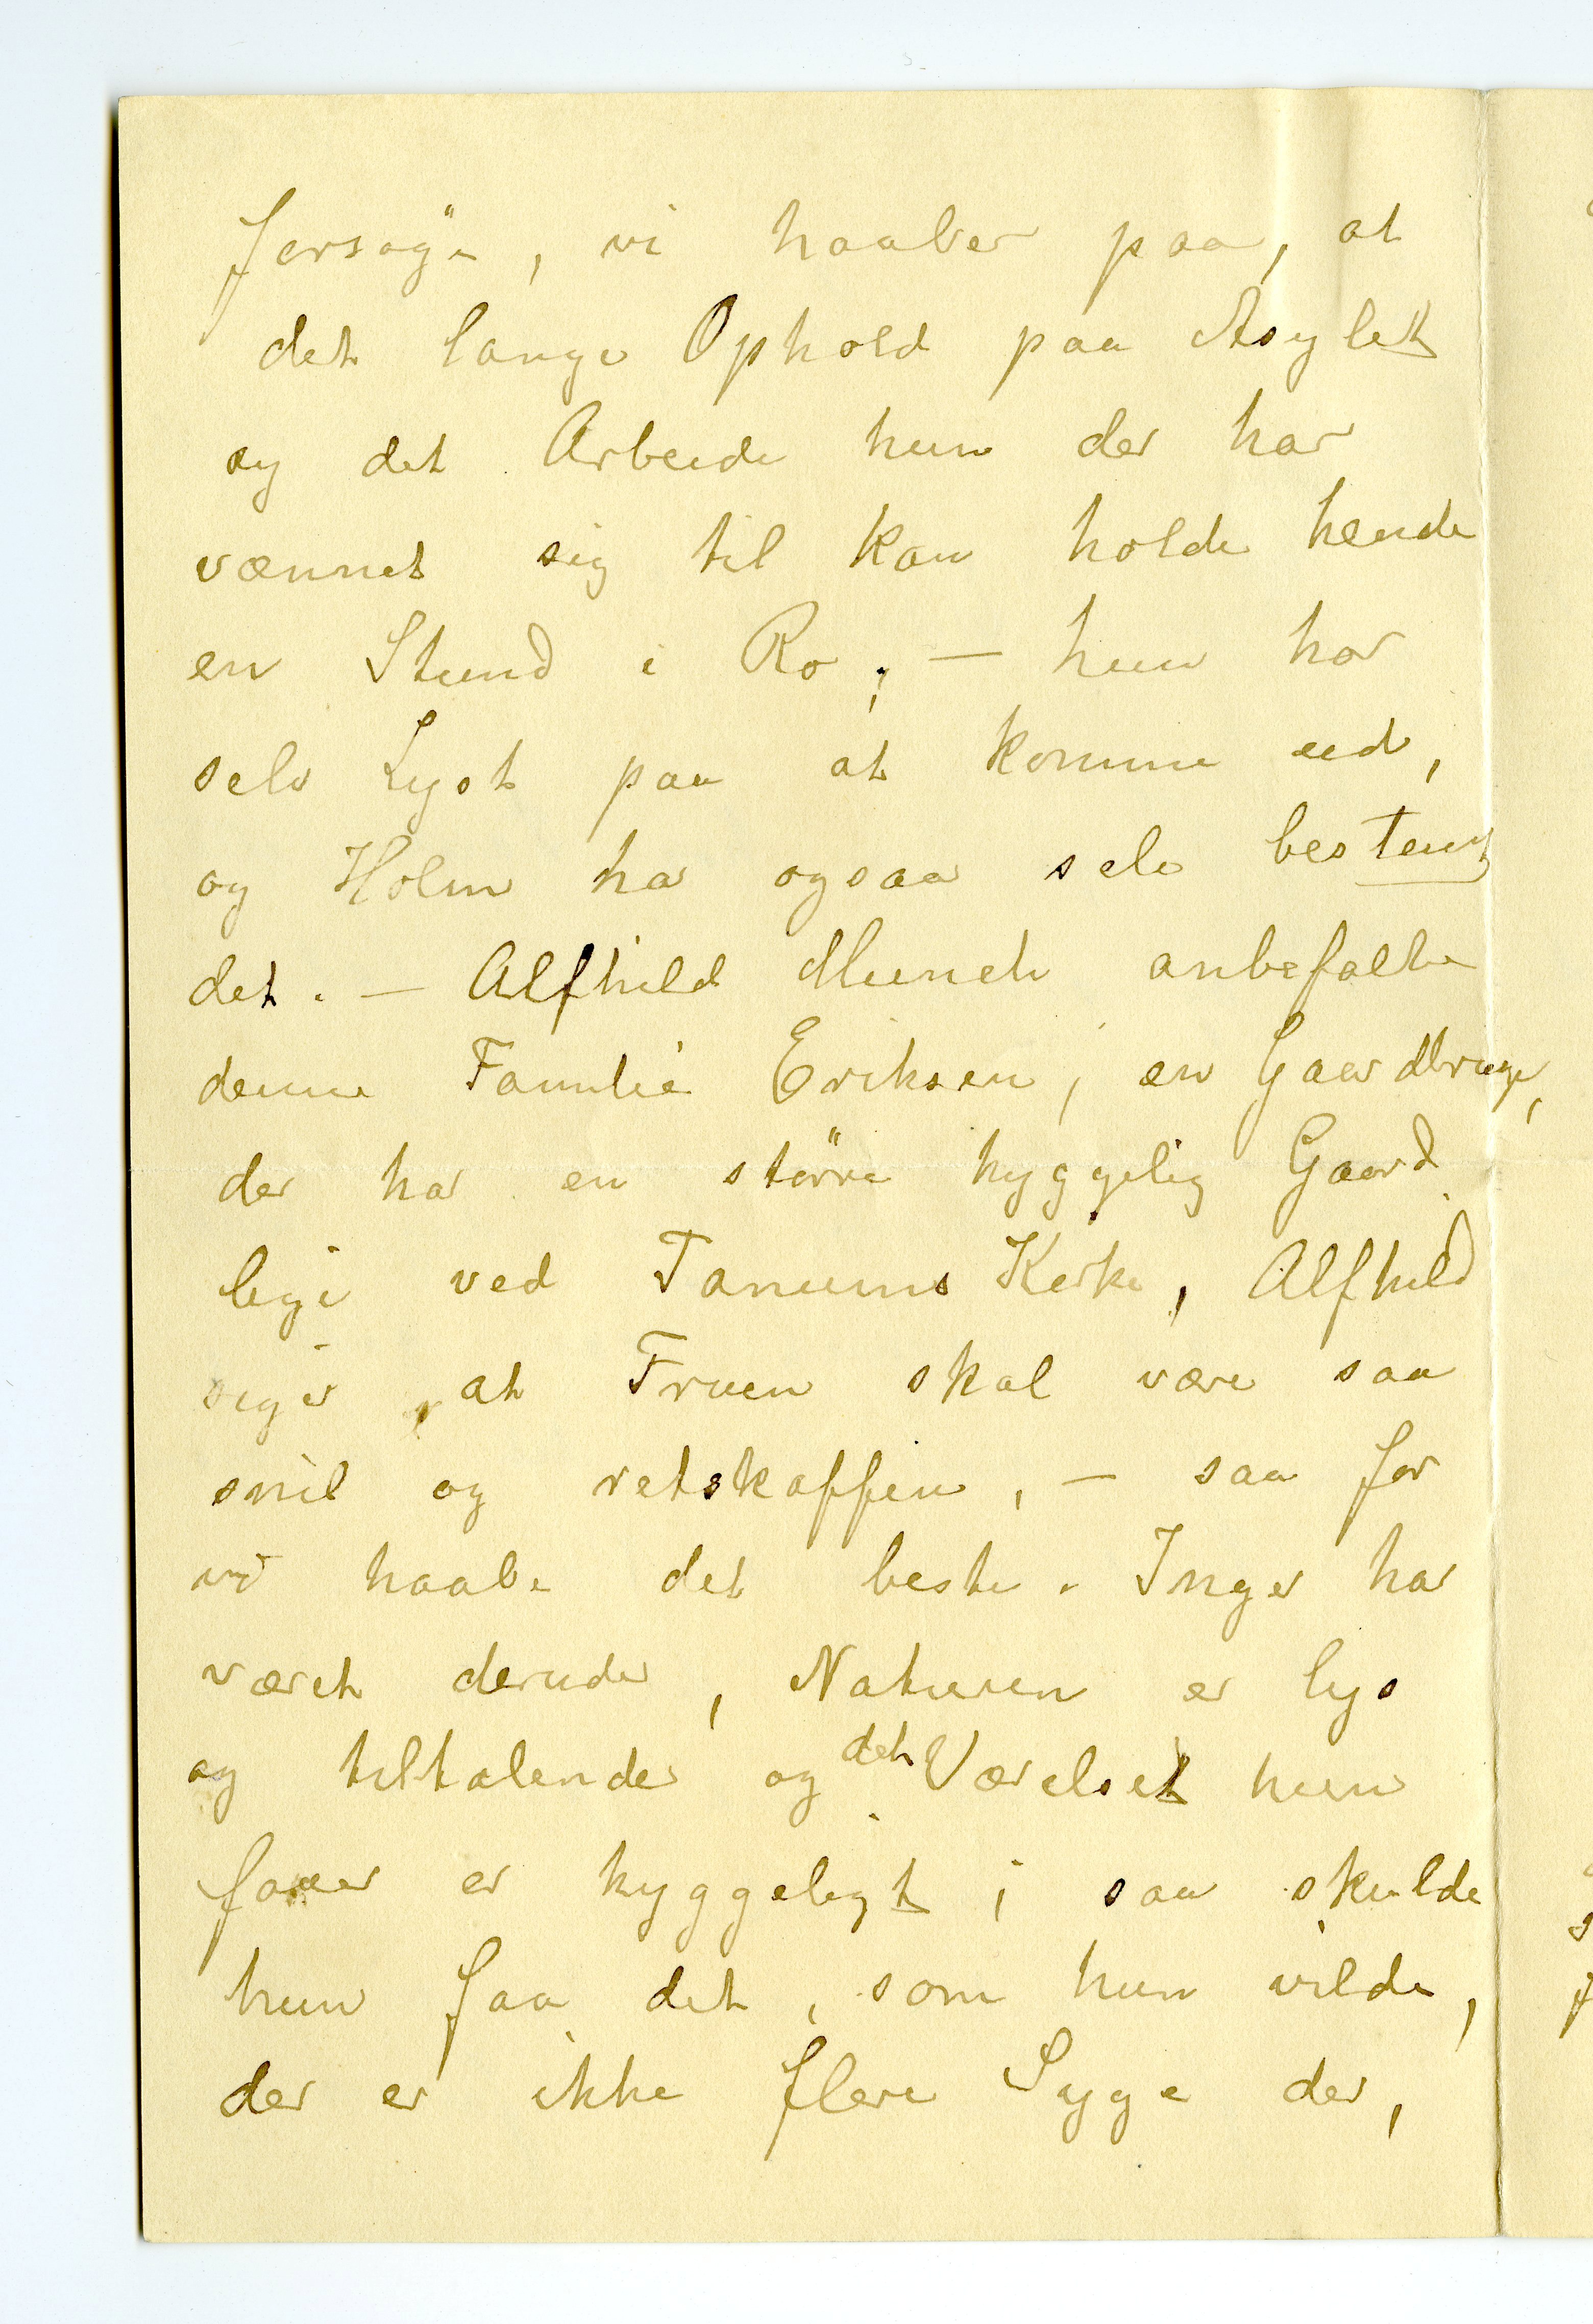 forsøge, vi haaber paa, at
det lange Ophold paa Asylet
og det Arbeide hun der har
vænnet sig til kan holde hende
en Stund i Ro; — hun har
selv Lyst paa at komme ud,
og Holm har ogsaa selv bestemt
det. — Alfhild Munch anbefalte
denne Familie Eriksen, en Gaardbruger,
der har en större hyggelig Gaard
lige ved Tanums Kirke, Alfhild
siger, at Fruen skal være saa
snil og retskaffen, — saa før
vi haabe det beste. Inger har
været derude, Naturen er lys
og tiltalende og det Værelset hun
faaer er hyggeligt; saa skulde
hun faa det, som hun vilde,
der er ikke flere Syge der,